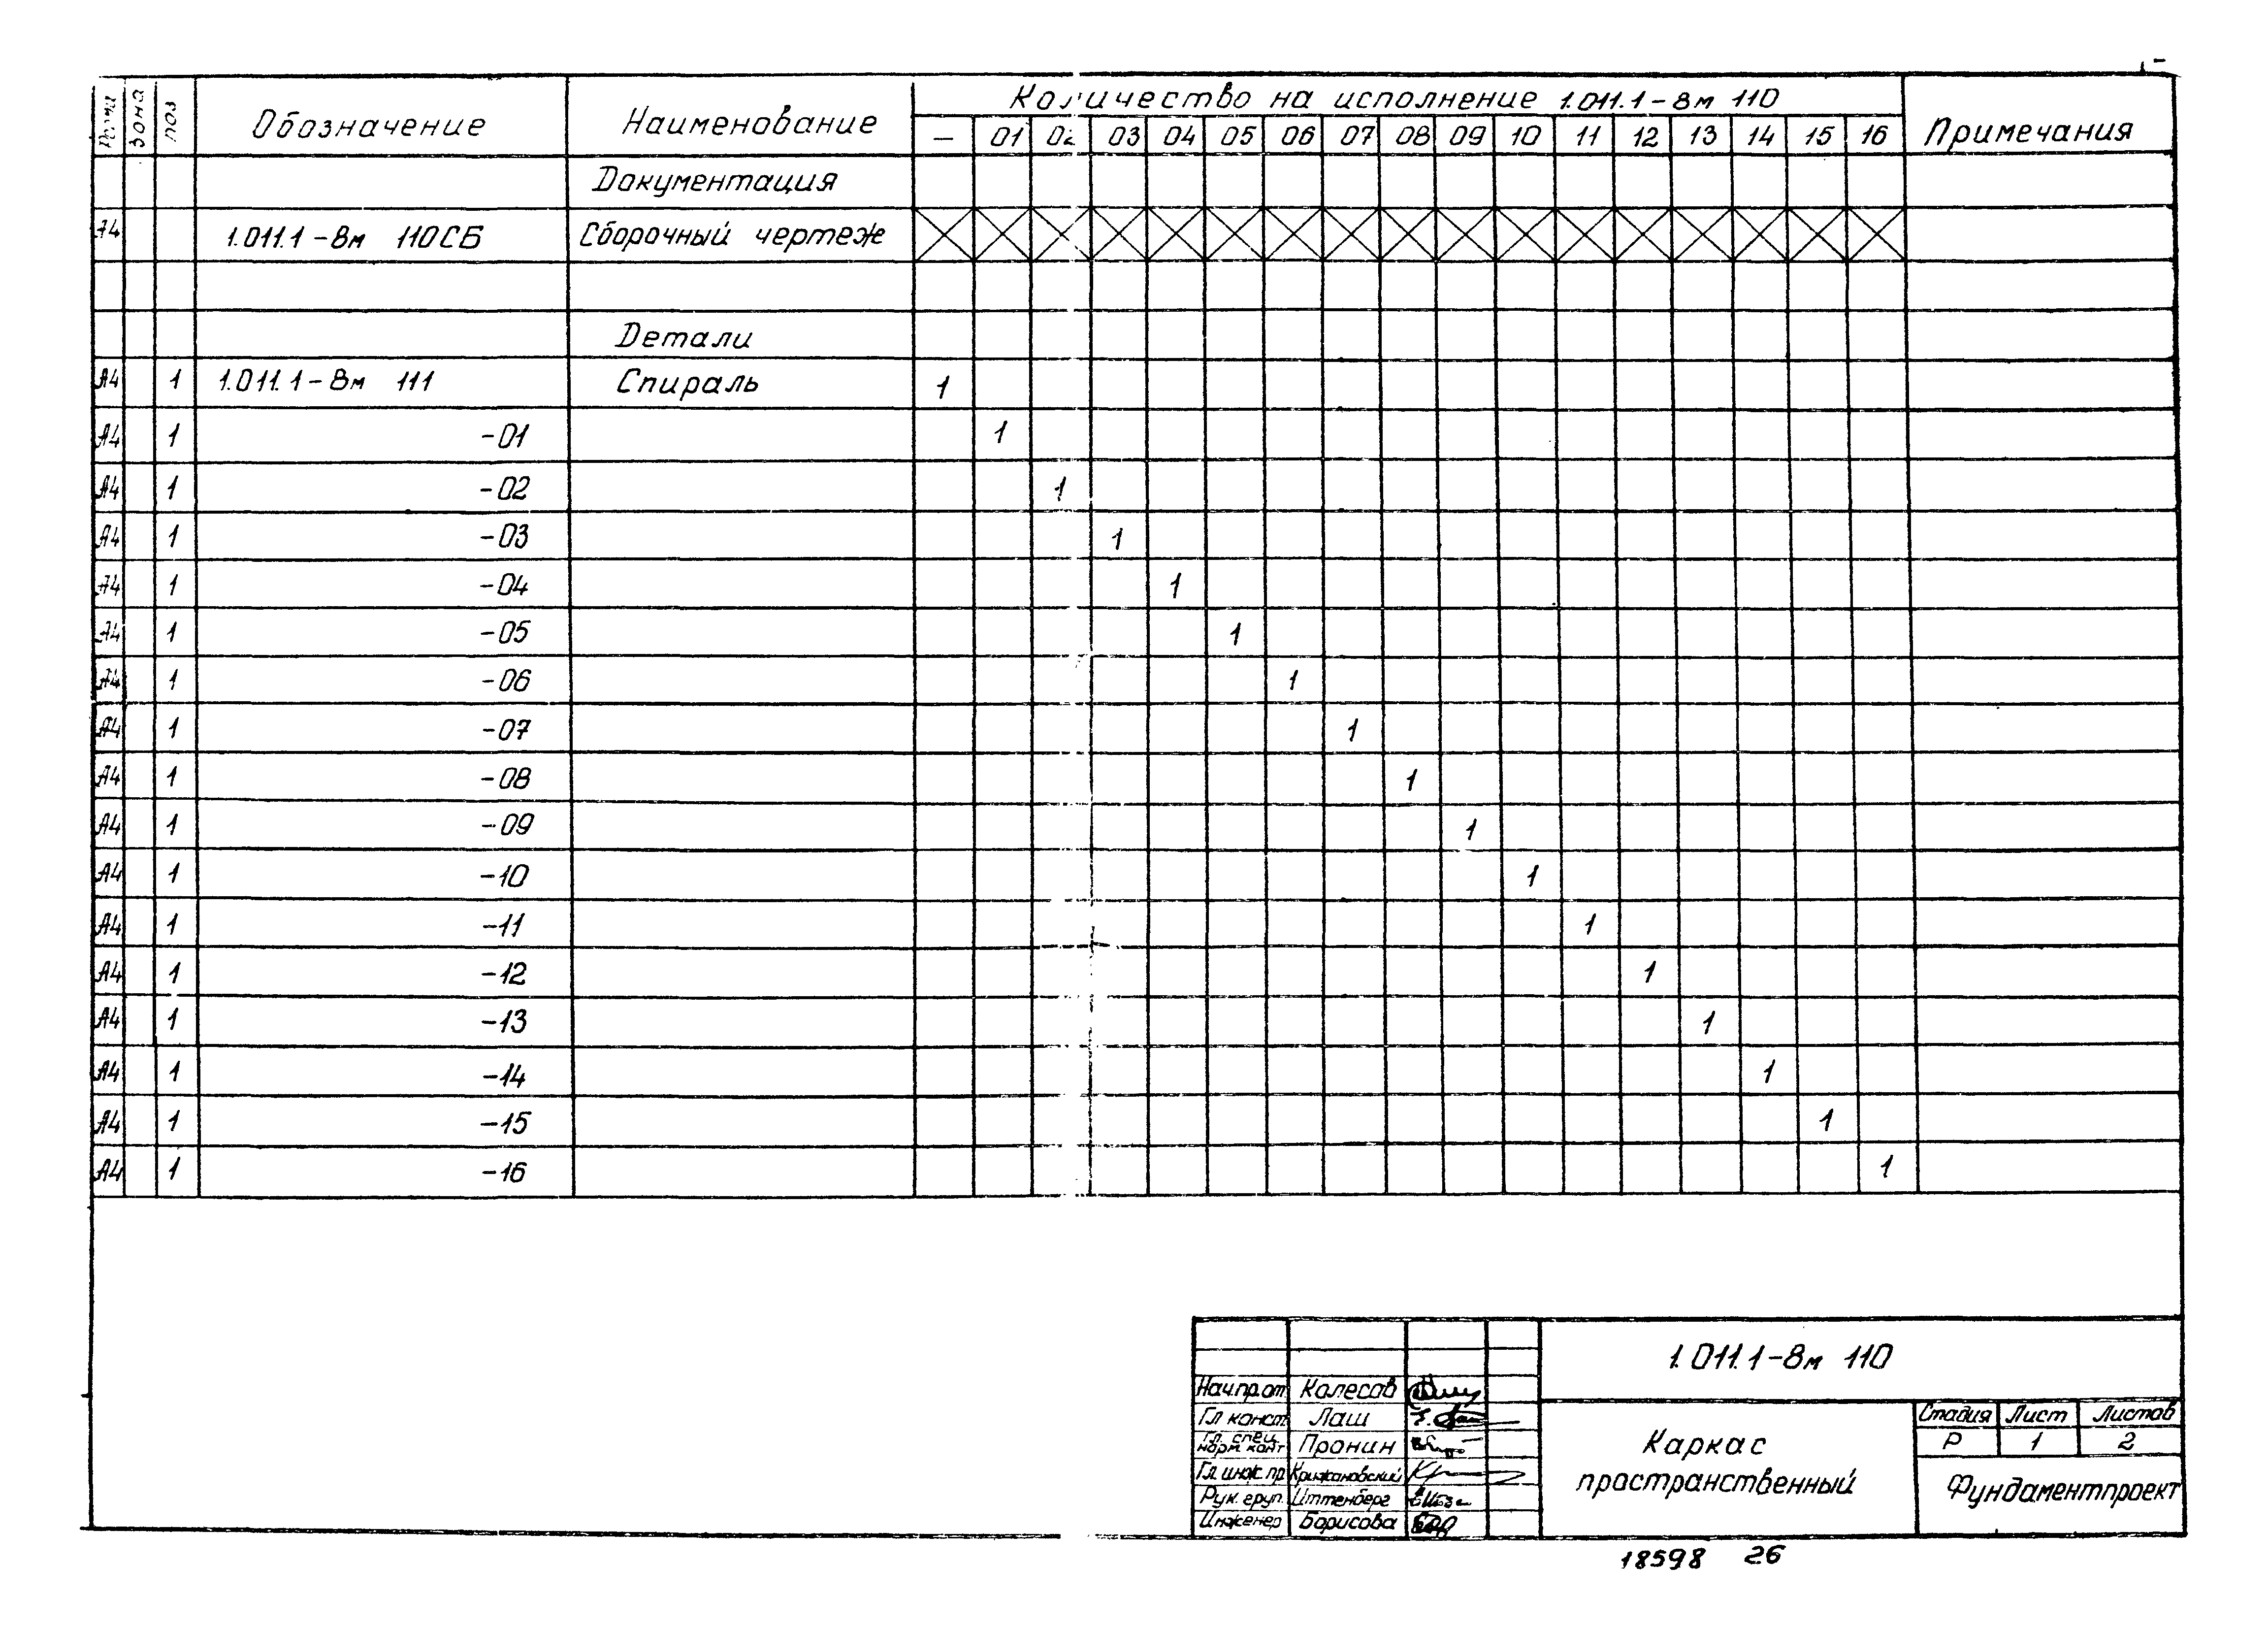 Зона
поз
Обозначение
Наименование
Количество на исполнение 1.011.1-8м 110
Примечания
— 01 02 03 04 05 06 07 08 09 10 11 12 13 14 15 16
Документация
А4 1.011.1-8м 110СБ Сборочный чертеж
Детали
А4 1 1.011.1-8м 111 Спираль 1
А4 1 -01 1
А4 1 -02 1
А4 1 -03 1
А4 1 -04 1
А4 1 -05 1
А4 1 -06 1
А4 1 -07 1
А4 1 -08 1
А4 1 -09 1
А4 1 -10 1
А4 1 -11 1
А4 1 -12 1
А4 1 -13 1
А4 1 -14 1
А4 1 -15 1
А4 1 -16 1
1.011.1-8м 110
Нач.пр.от Колесов
Гл конст. Лаш
Гл. спец. норм. конт Пронин
Гл инж. пр Крижановский
Рук. груп. Иттенберг
Инженер Борисова
Каркас
пространственный
Стадия Лист Листов
Р 1 2
Фундаментпроект
18598 26